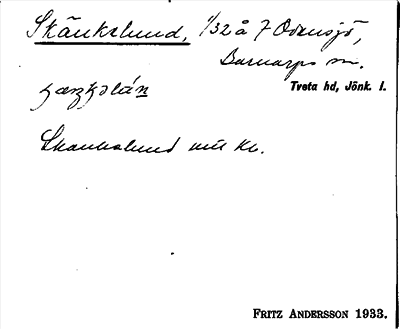 Skänkslund, 1/32 å 7 Odensjö,
Barnarps sn.
Tveta hd, Jönk. l.
Skänkslund mil kr.
FRITZ ANDERSSON 1933.